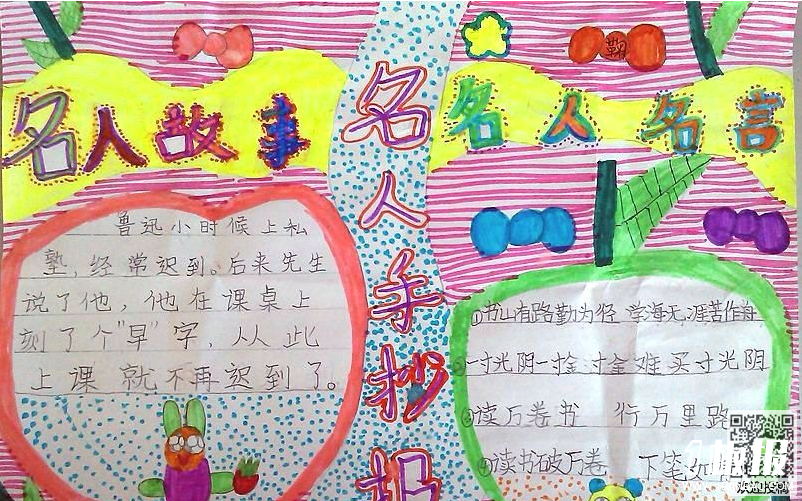 名人故事
鲁迅小时候上私
塾,经常迟到。后来先生
说了他,他在课桌上
刻了个"早"字,从此
上课就不再迟到了。
名人手抄报
名人名言
①书山有路勤为径 学海无涯苦作舟
②一寸光阴一寸金 寸金难买寸光阴
③读万卷书 行万里路
④读书破万卷 下笔如